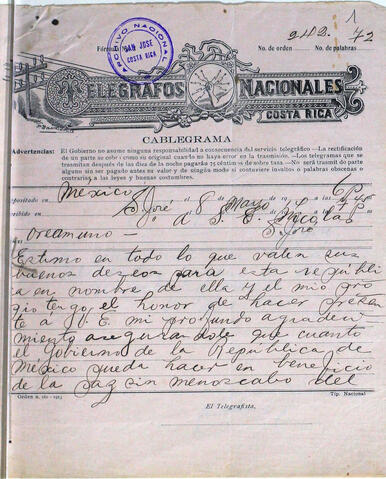 1
Fórmula N.
No. de orden 2112. No. de palabras 72
ARCHIVO NACIONAL
SAN JOSE
COSTA RICA
TELÉGRAFOS NACIONALES
COSTA RICA
CABLEGRAMA
Advertencias: El Gobierno no asume ninguna responsabilidad a consecuencia del servicio telegráfico—La rectificación
de un parte se cobra como si original cuando no haya error en la trasmisión.—Los telegramas que se
trasmitan después de las diez de la noche pagarán 75 céntimos de sobre tasa.—No será trasmitido parte
alguno sin ser pagado antes su valor y de ningún modo si contuviere insultos o palabras obscenas o
contrarias a las leyes y buenas costumbres.
Depositado en México
Recibido en S. José 8 Mayo 191
a S. E. Nicolás
Oreamuno — S. José
Estimo en todo lo que valen sus
buenos deseos para esta repúbli
ca en nombre de ella y el mío pro
pio tengo el honor de hacer presen
te a S. E. mi profundo agradeci
miento asegurándole que cuanto
el Gobierno de la República de
México pueda hacer en beneficio
de la paz sin menoscabo del
Orden n. 160-1913
Tip. Nacional
El Telegrafista,